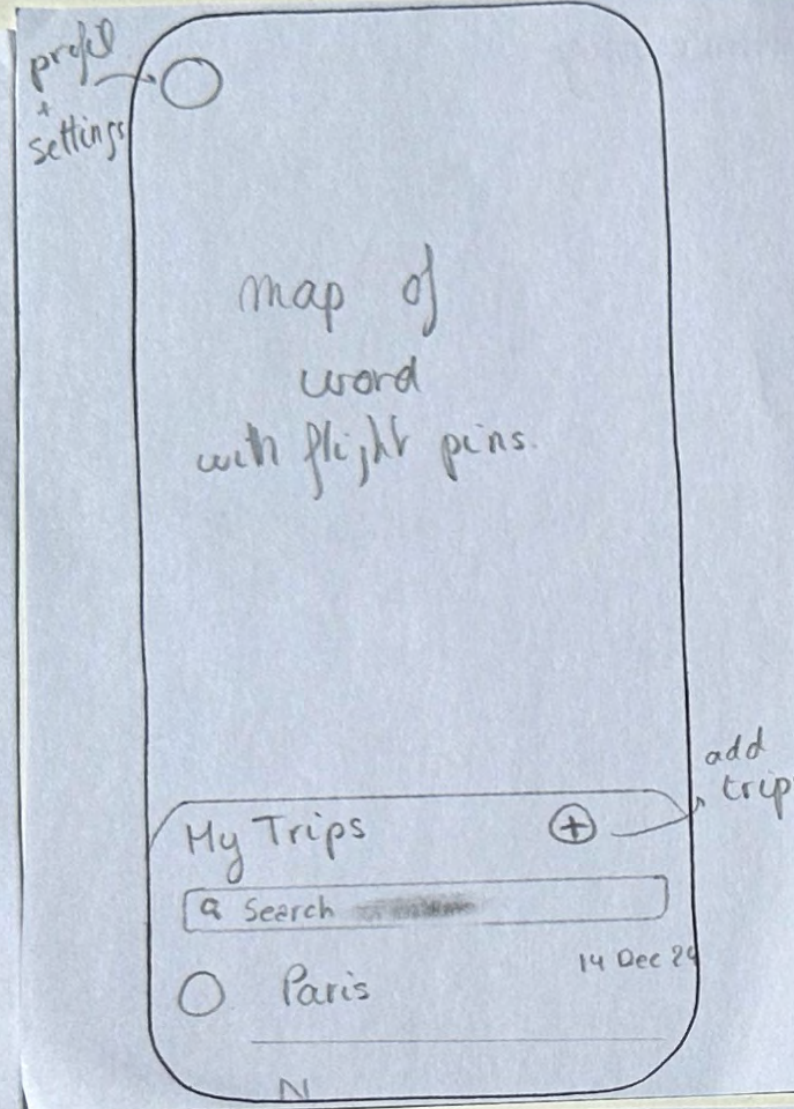 profil
+
settings
map of
word
with flight pins.
add
trip
My Trips
Search
14 Dec 24
Paris
N